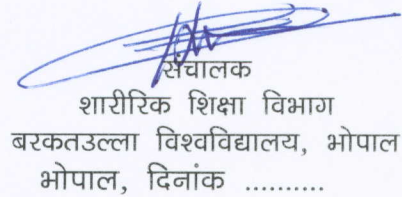 संचालक
शारीरिक शिक्षा विभाग
बरकतउल्ला विश्वविद्यालय, भोपाल
भोपाल, दिनांक ..........